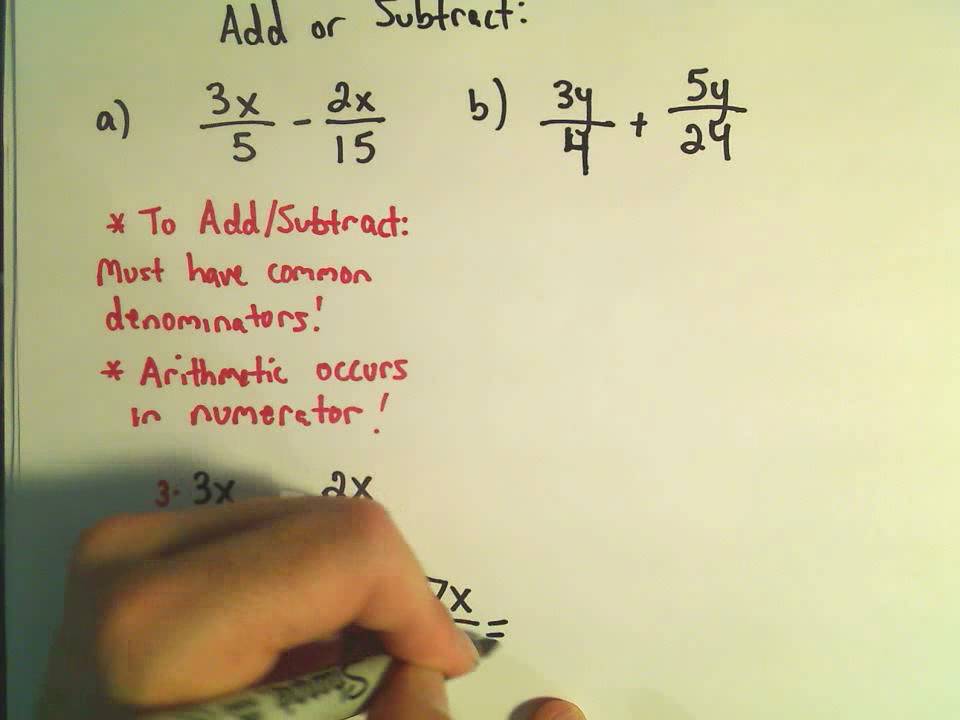 Add or Subtract:
a) 3x/5 - 2x/15 b) 3y/4 + 5y/24
* To Add/Subtract:
Must have common
denominators!
* Arithmetic occurs
in numerator!
3· 3x - 2x
7x =